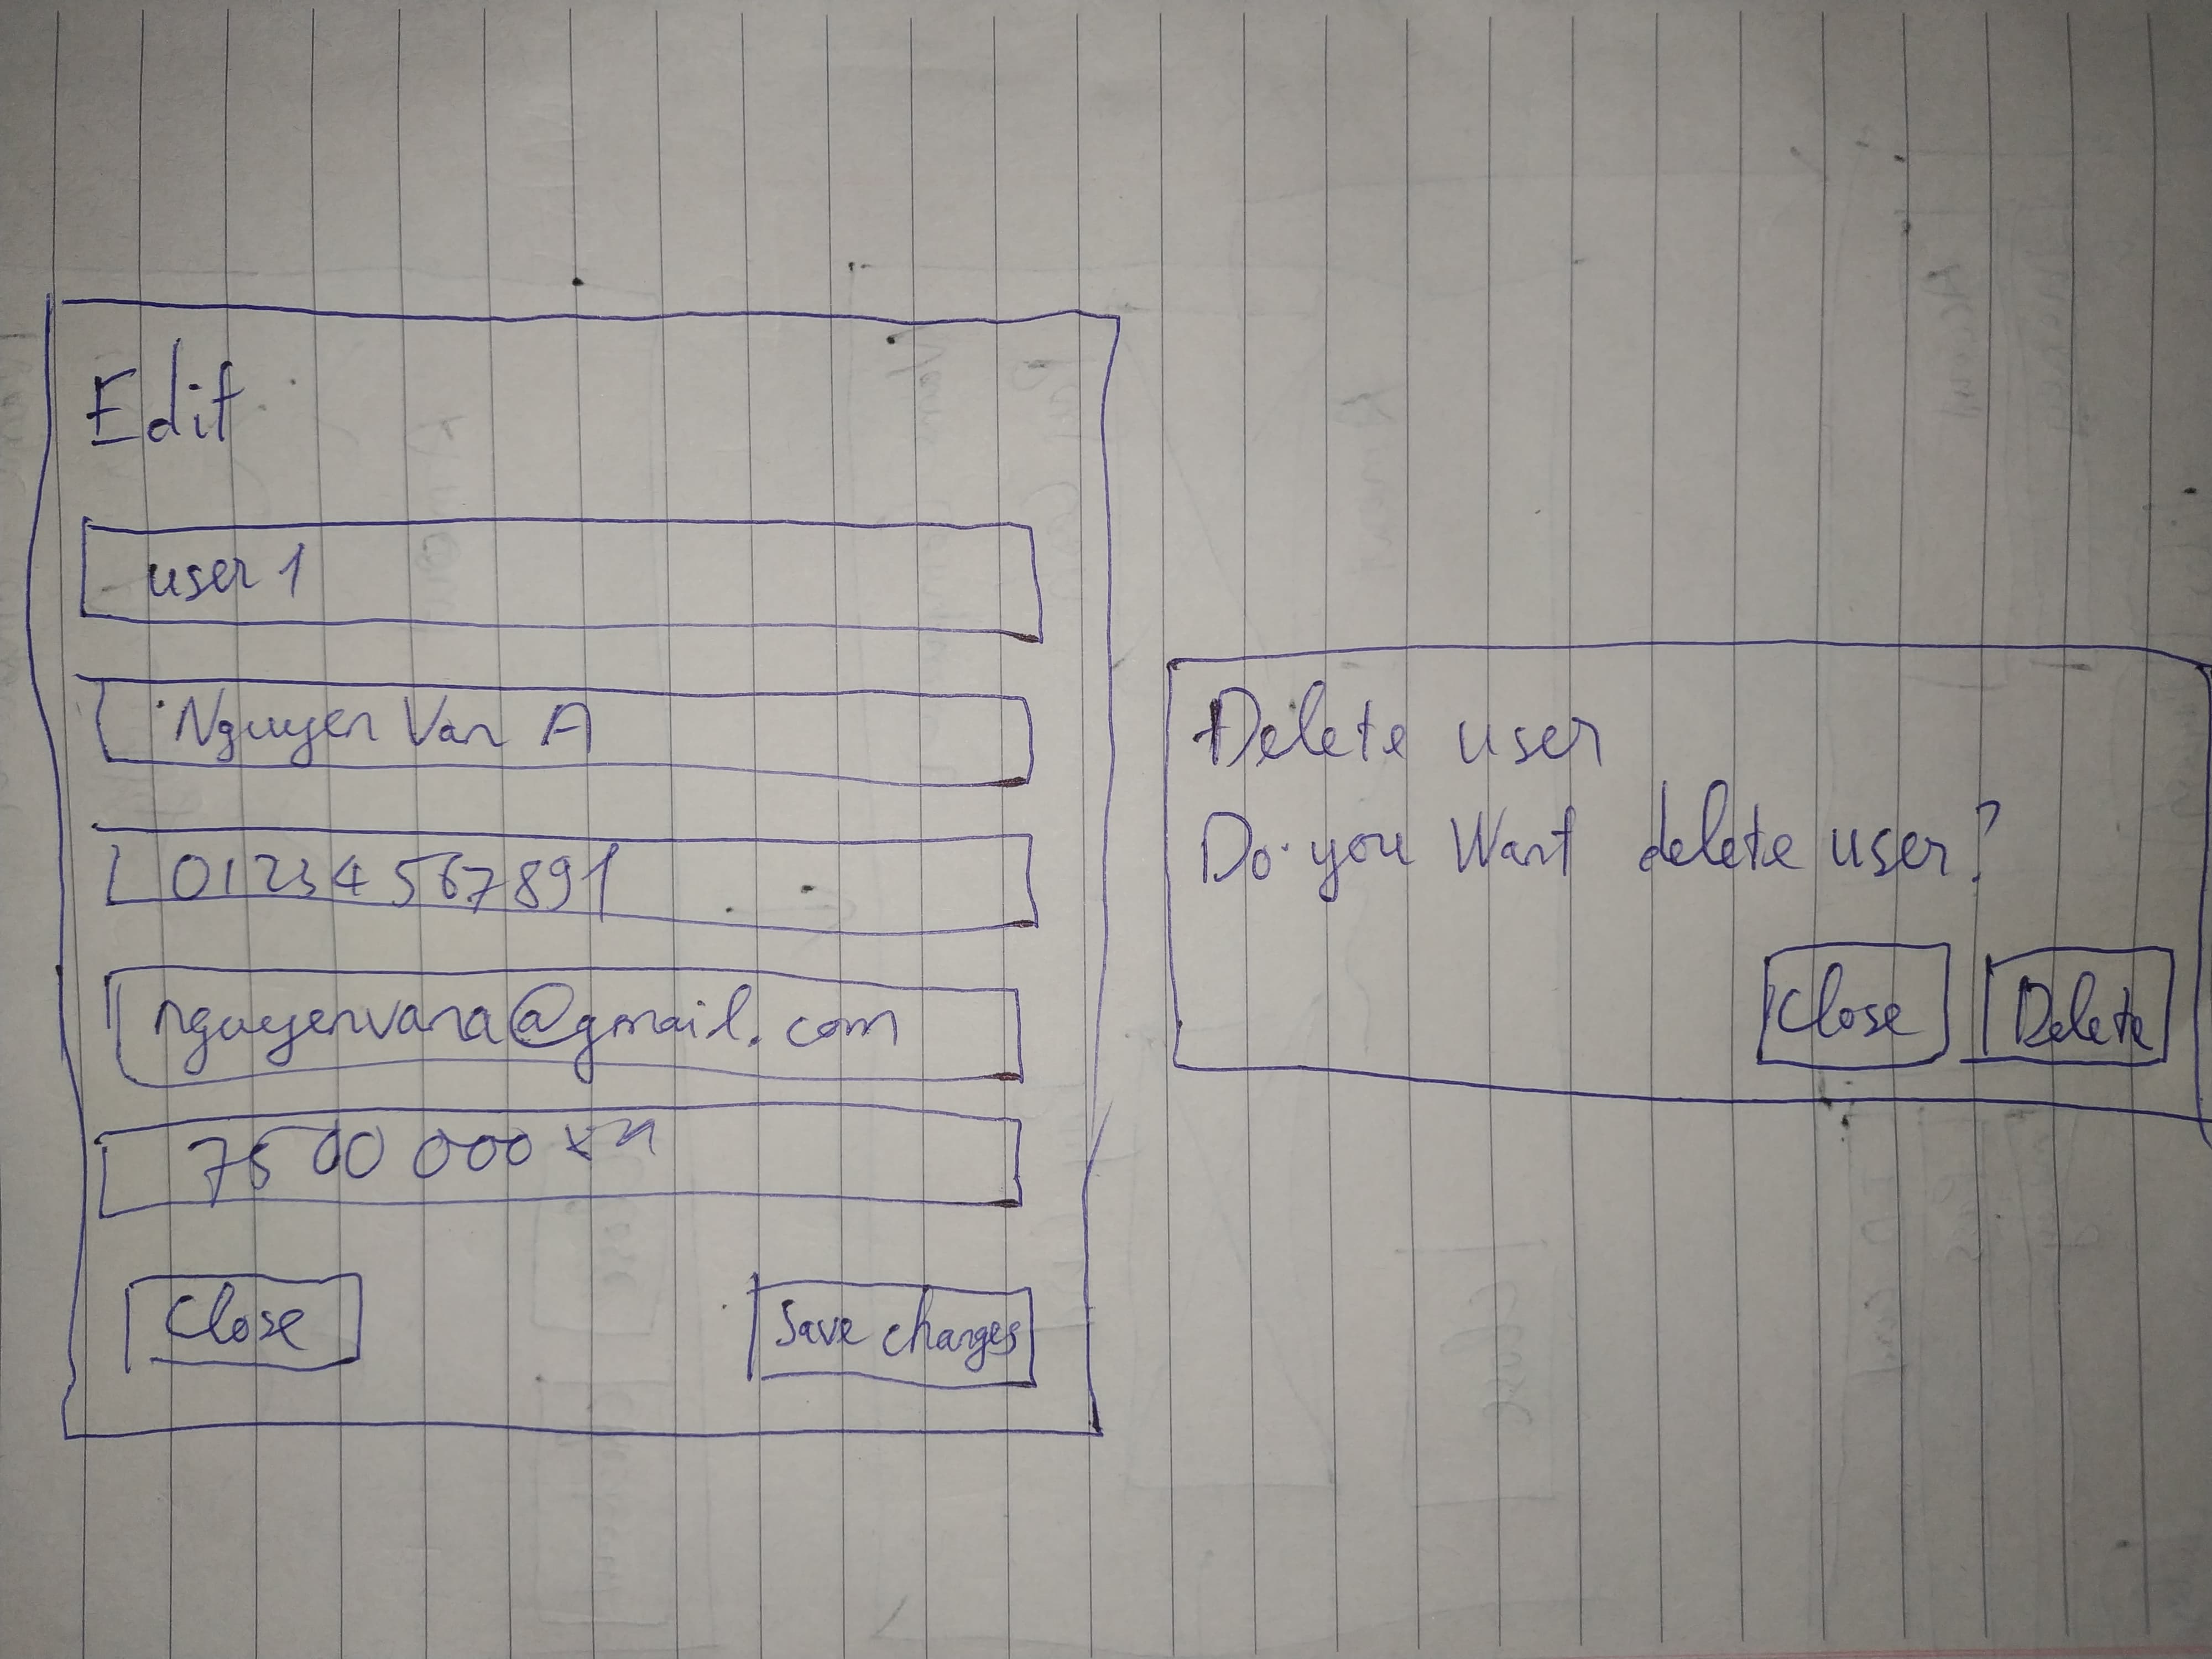 Edit
user 1
Nguyen Van A
01234567891
nguyenvana@gmail.com
7500 000
Close
Save changes
Delete user
Do you Want delete user?
Close
Delete